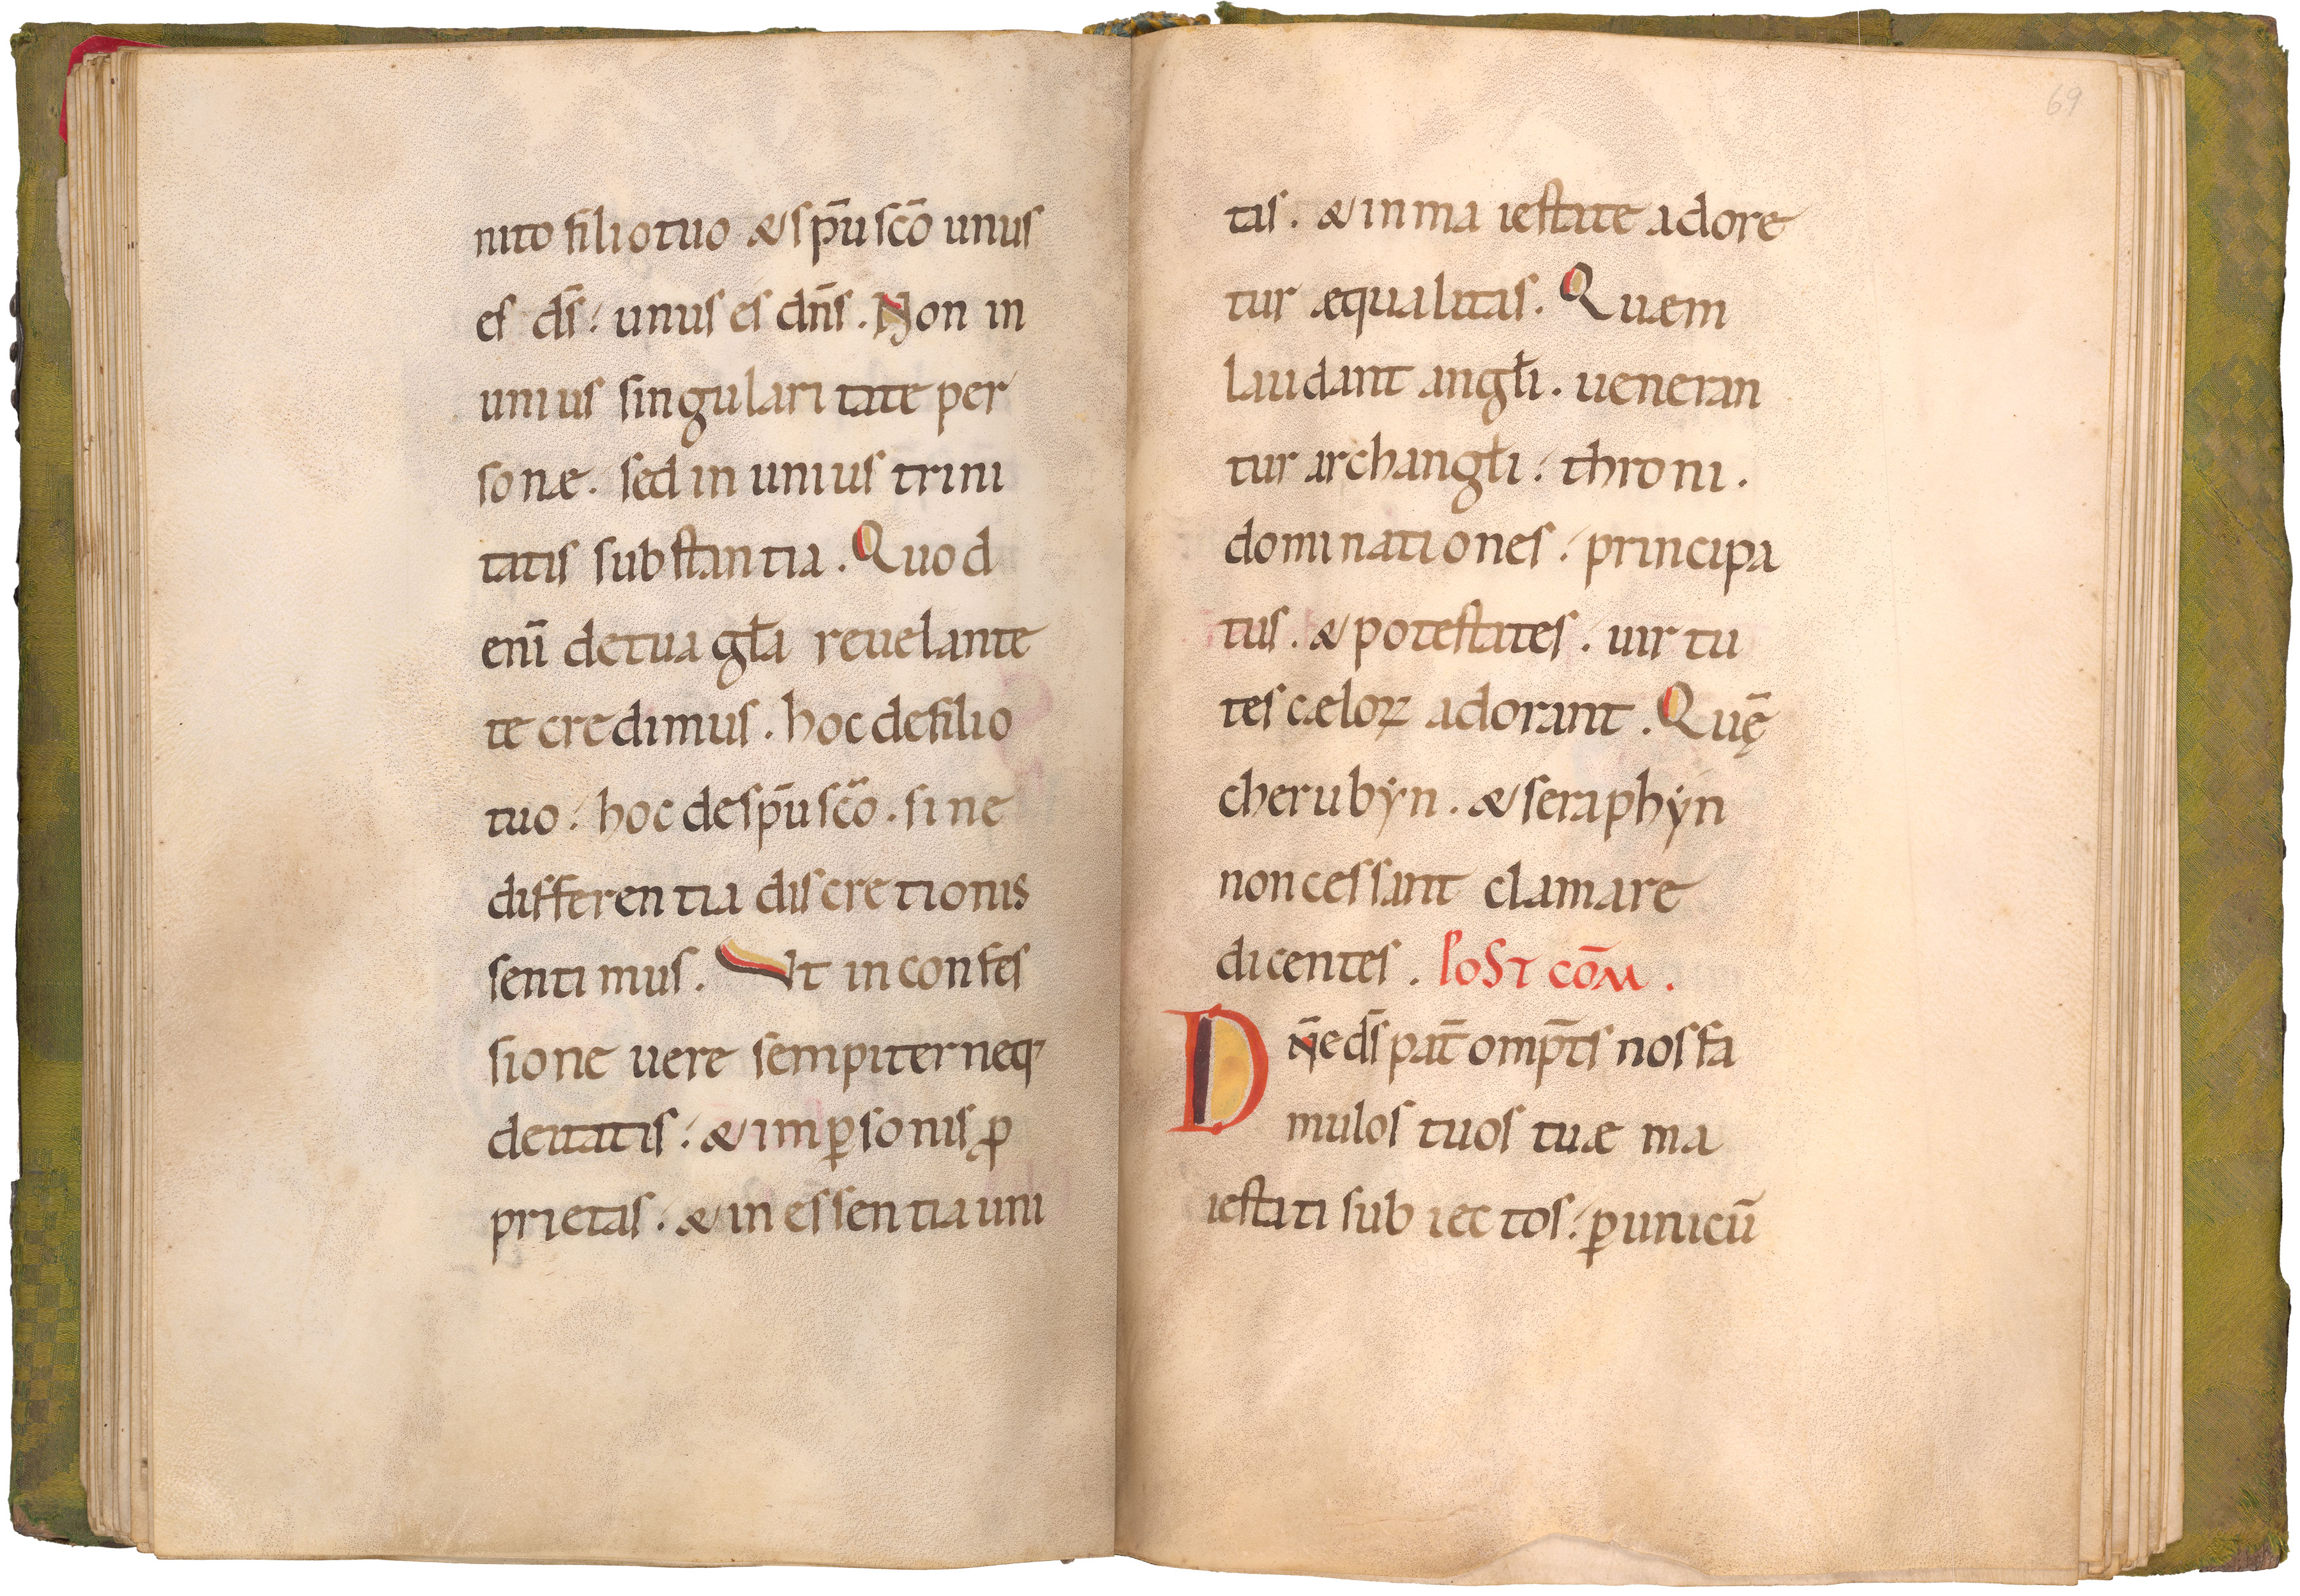 nito filio tuo & sp̄u sc̄o unus
es ds̄. unus es dn̄s. Non in
unius singularitate per
sonæ. sed in unius trini
tatis substantia. Quod
enī de tua gła reuelante
te credimus. hoc de filio
tuo. hoc de sp̄u sc̄o. sine
differentia discretionis
sentimus. Ut in confes
sione uere sempiterneq;
deitatis. & im ꝑsonis ꝓ
prietas. & in essentia uni
69
tas. & in maiestate adore
tur æqualitas. Quæm
laudant angłi. ueneran
tur archangłi. throni.
dominationes. principa
tus. & potestates. uirtu
tes cæloꝝ adorant. Quę̄
cherubẏn. & seraphẏn
non cessant clamare
dicentes. Post com̄.
Dn̄e ds̄ pat̄ omp̄ts nos fa
mulos tuos tuæ ma
iestati subiectos. ꝑ unicū